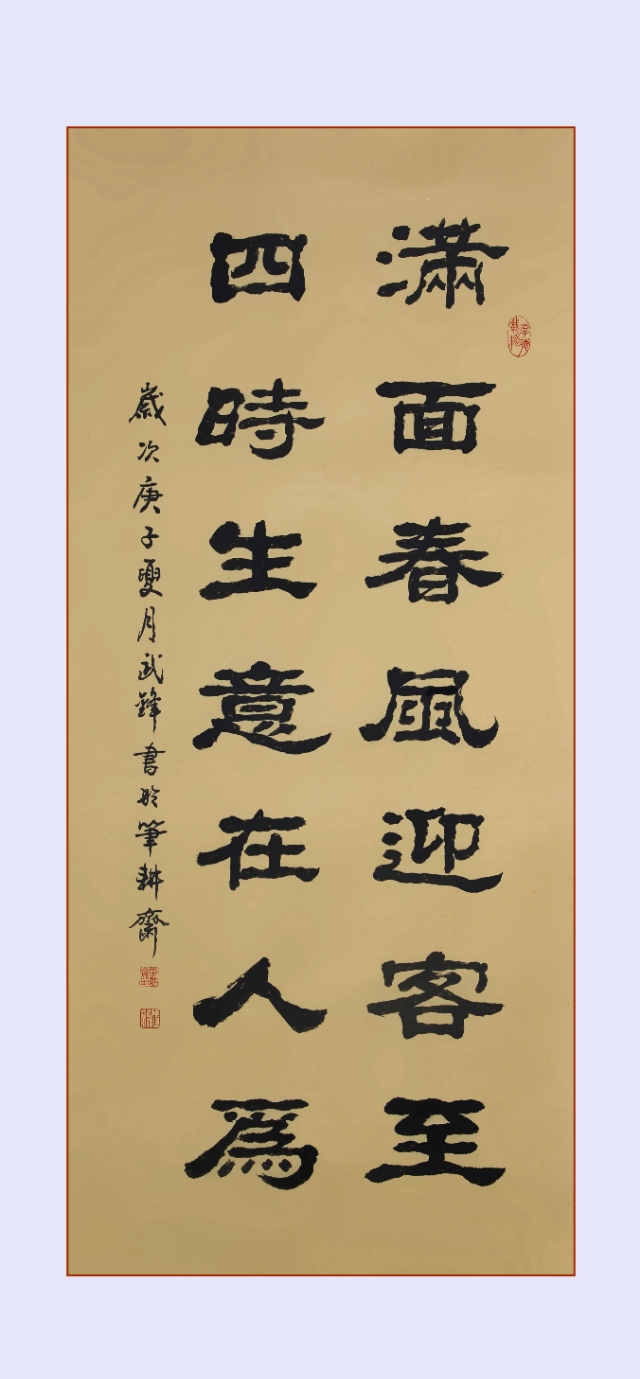 滿面春風迎客至
四時生意在人為
歲次庚子夏月武鋒書於筆耕齋